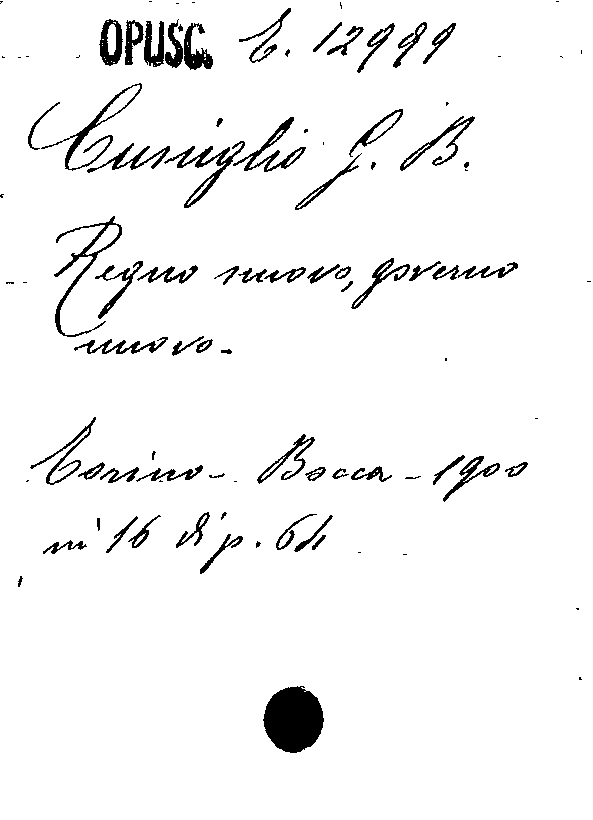 OPUSC. E. 12999
Cuniglio G. B.
Regno nuovo, governo
nuovo.
Torino - Bocca - 1900
in 16 di p. 64